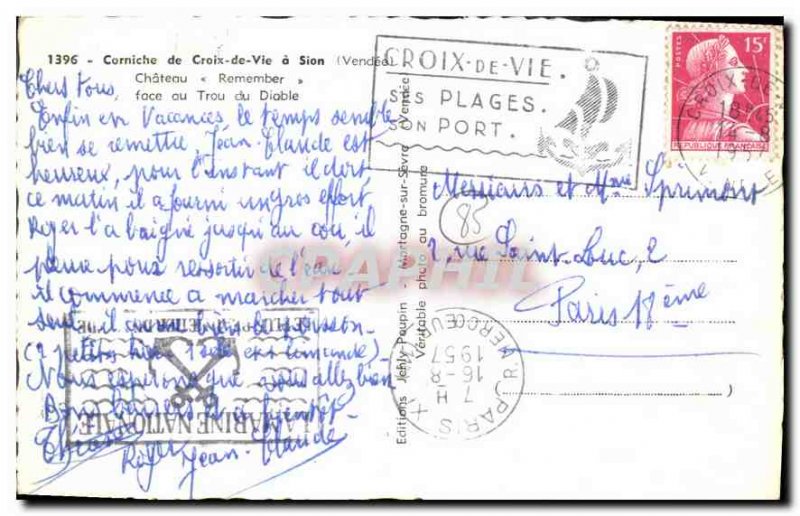 1396 - Corniche de Croix-de-Vie à Sion (Vendée)
Château « Remember »
face au Trou du Diable
Chers tous,
Enfin en vacances, le temps semble
bien se remettre, Jean-Claude est
heureux, pour l'instant il dort
ce matin il a fourni un gros effort
Roger l'a baigné jusqu'au cou, il
pleure pour ressortir de l'eau
il commence à marcher tout
seul, il
Nous espérons que vous allez bien
Bons baisers et à bientôt
Roger Jean-Claude
CROIX-DE-VIE.
SES PLAGES.
SON PORT.
POSTES
15F
REPUBLIQUE FRANÇAISE
CROIX-DE-VIE
18H45
1957
Messieurs et Mme Sprimont
2, rue Saint-Luc, 2
Paris 18ème
85
Editions Jehly-Poupin - Mortagne-sur-Sèvre (Vendée)
Véritable photo au bromure
PARIS X
R. MERCŒUR
7 H
16-8
1957
LA MARINE NATIONALE
CRAPHIL